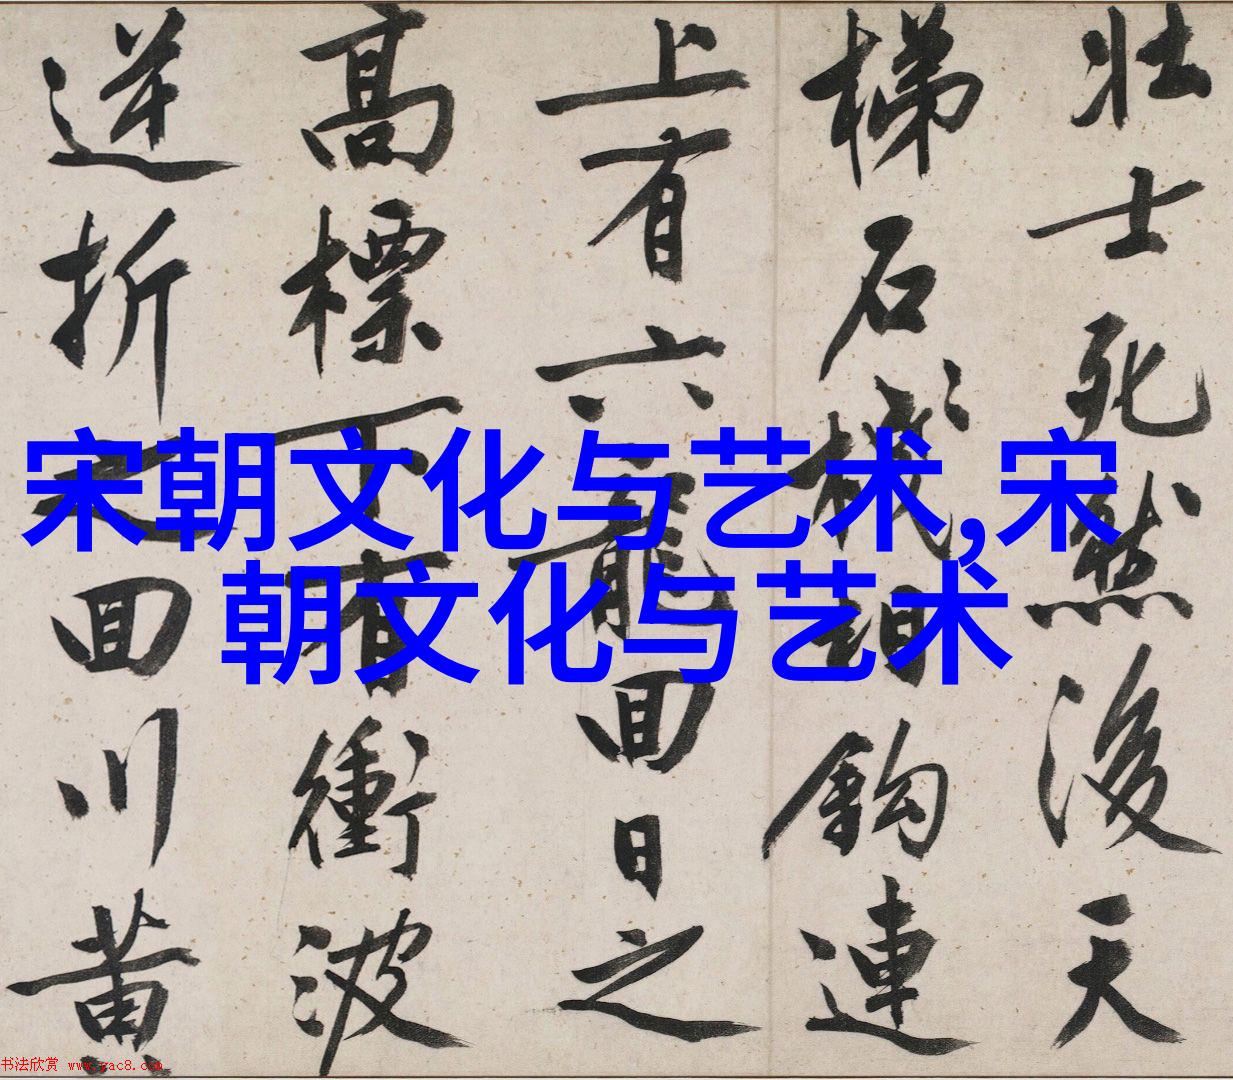 壯士死然後天
梯石棧相鈎連
上有六龍回日之
高標下有衝波
逆折之回川黃
宋朝文化与艺术,宋
朝文化与艺术
书法欣赏 www.yac8.com